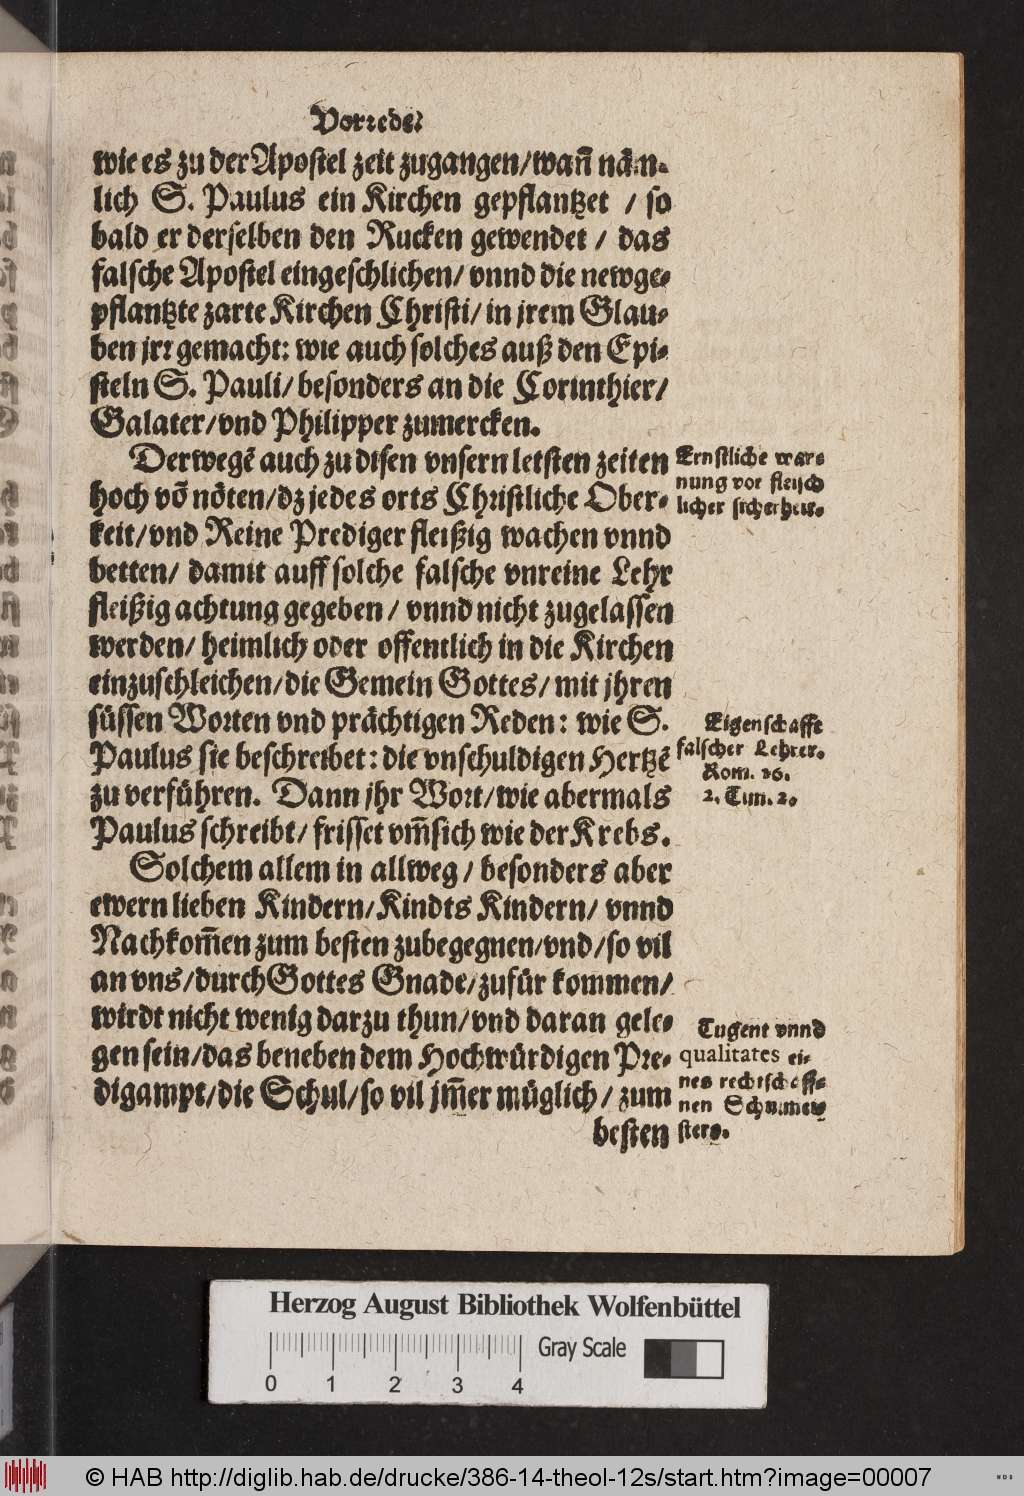 Vorrede.
wie es zu der Apostel zeit zugangen/wañ näm-
lich S. Paulus ein Kirchen gepflantzet / so
bald er derselben den Rucken gewendet / das
falsche Apostel eingeschlichen/ vnnd die newge-
pflantzte zarte Kirchen Christi/ in jrem Glau-
ben jrr gemacht: wie auch solches auß den Epi-
steln S. Pauli/ besonders an die Corinthier/
Galater/vnd Philipper zumercken.
Derwegē auch zu disen vnsern letsten zeiten
hoch vō nöten/dz jedes orts Christliche Ober-
keit/vnd Reine Prediger fleißig wachen vnnd
betten/ damit auff solche falsche vnreine Lehr
fleißig achtung gegeben / vnnd nicht zugelassen
werden/ heimlich oder offentlich in die Kirchen
einzuschleichen/die Gemein Gottes/ mit jhren
süssen Worten vnd prächtigen Reden: wie S.
Paulus sie beschreibet: die vnschuldigen Hertzē
zu verführen. Dann jhr Wort/wie abermals
Paulus schreibt/ frisset vm̃sich wie der Krebs.
Solchem allem in allweg / besonders aber
ewern lieben Kindern/Kindts Kindern/ vnnd
Nachkom̃en zum besten zubegegnen/vnd/so vil
an vns/durch Gottes Gnade/zufür kommen/
wirdt nicht wenig darzu thun/vnd daran gele-
gen sein/das beneben dem Hochwürdigen Pre-
digampt/die Schul/so vil jm̃er müglich / zum
besten
Ernstliche war-
nung vor fleisch
licher sicherheit.
Eigenschafft
falscher Lehrer.
Rom. 16.
2. Tim. 2.
Tugent vnnd
qualitates ei-
nes rechtschaff-
nen Schulmey
sters.
Herzog August Bibliothek Wolfenbüttel
Gray Scale
0 1 2 3 4
© HAB http://diglib.hab.de/drucke/386-14-theol-12s/start.htm?image=00007